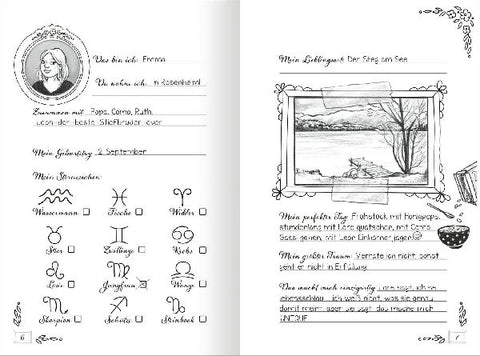 Das bin ich: Emma
Da wohne ich: in Rosenheim
Zusammen mit: Papa, Carna, Ruth,
Leon der beste Stiefbruder ever
Mein Geburtstag: September
Mein Sternzeichen:
Wassermann Fische Widder
Stier Zwillinge Krebs
Löwe Jungfrau Waage
Skorpion Schütze Steinbock
6
Mein Lieblingsort: Der Steg am See
Mein perfekter Tag: Frühstück mit Honigpops,
stundenlang mit Lara quatschen, mit Carna
Gassi gehen, mit Leon Einhörner jagen
Mein größter Traum: Verrate ich nicht, sonst
geht er nicht in Erfüllung
Das macht mich einzigartig: Lara sagt, ich sei
ich weiß nicht, was sie genau
damit meint, aber sie sagt, das mache mich
UNIQUE
7